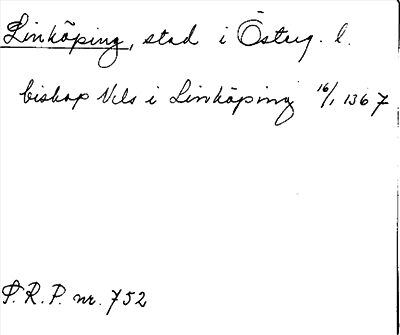 Linköping, stad i Österg. l.
biskop Nils i Linköping 16/1 1367
S.R.P. nr. 752